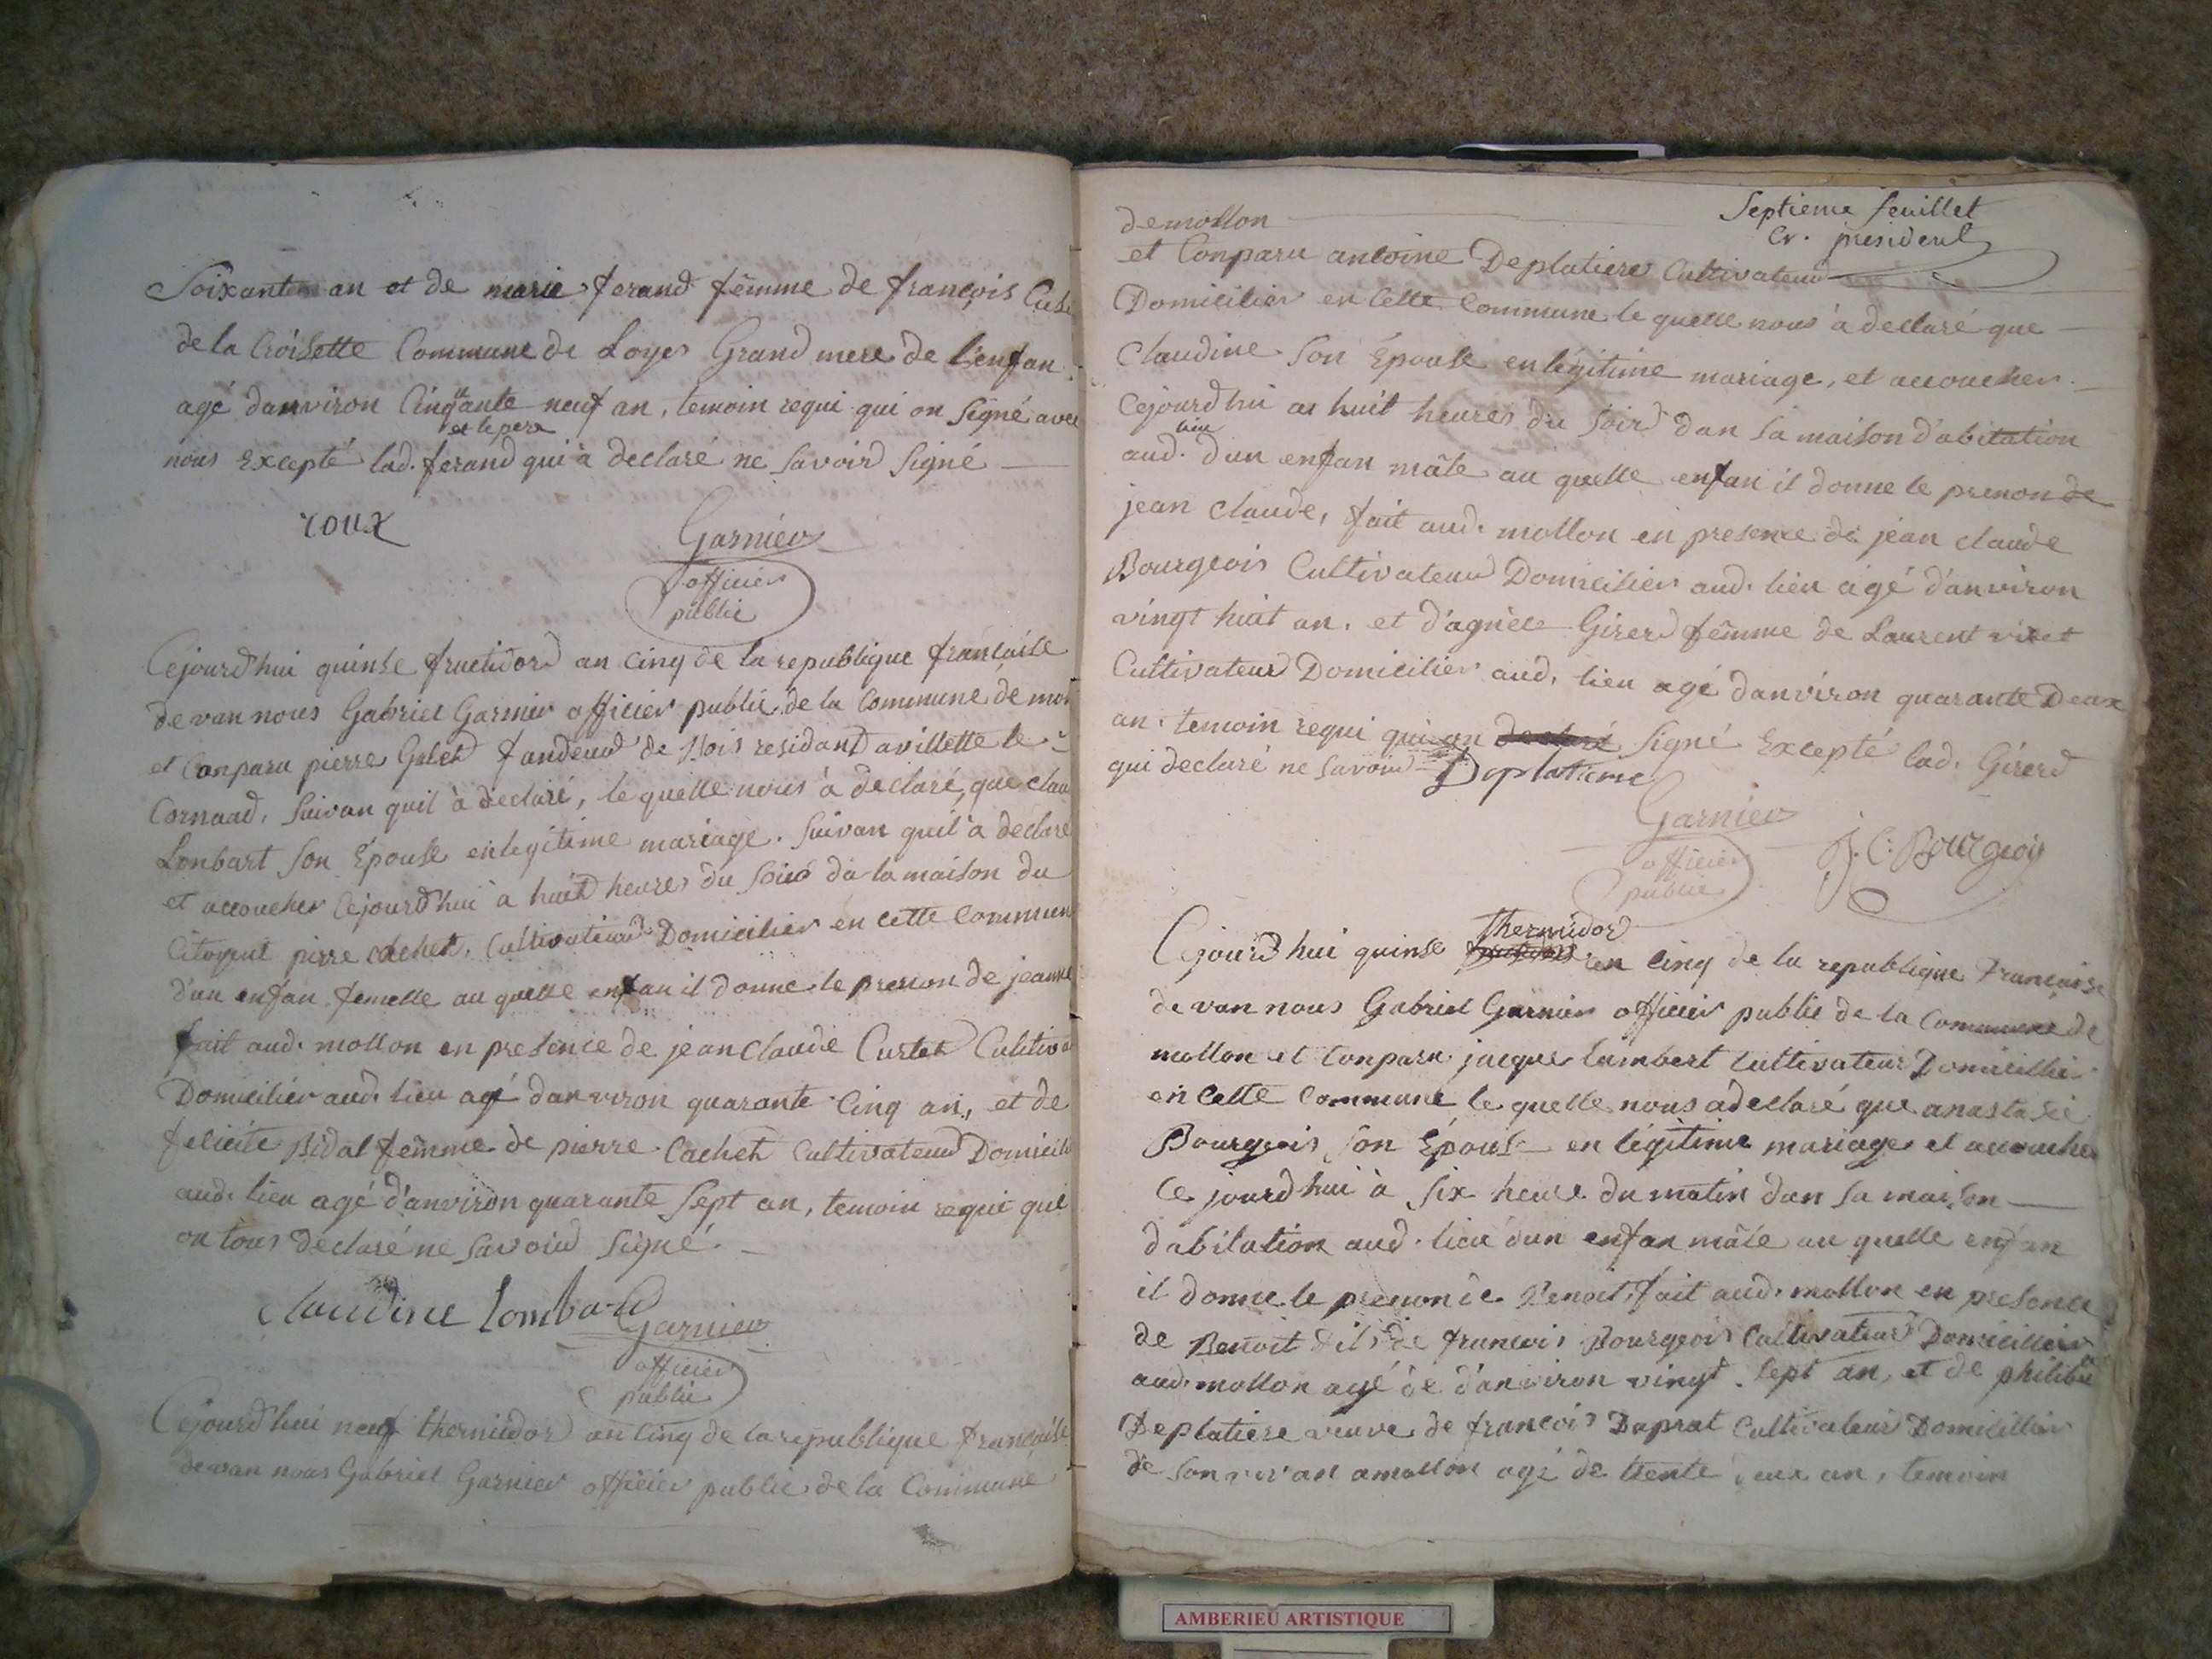 Soixante an et de marie ferand fêmme de françois
de la Croisette Commune de Loyes Grand mere de L'enfan
agé danviron Cinqante neuf an, temoin requi qui on Signé avec
et le pere
nous Excepté lad. ferand qui à declaré ne Savoir Signé
roux
Garnier
officier
public
Cejourd'hui quinse fructidor an cinq de la republique francaise
devan nous Gabriel Garnier officier public de la Commune de mol
et Conparu pierre fandeur de Bois residant avillette le
Cornaad, Suivan quil à declaré, le quelle nous à declaré, que clau
Lonbart Son Épouse en legitime mariage. Suivan quil a declaré
et accoucher Cejourd'hui à huit heures du Soir da la maison du
Citoyent pirre cachet, Cultivateur Domicilier en cette Commun
d'un enfan femelle au quelle enfan il donne le prenon de jeanne
fait aud. mollon en presence de jean Claude Curtet Cultiva
Domicilier aud. lieu agé danviron quarante Cinq an, et de
felicite Bidal fêmme de pierre Cachet Cultivateur Domicili
aud. lieu agé d'anviron quarante Sept an, temoin requi qui
on tous declaré ne Savoir Signé.
claudine Lombard
Garnier
officier
public
Cejourd'hui neuf thermidor an cinq de la republique francaise
devan nous Gabriel Garnier officier public de la Commune
Septieme feuillet
Cr. president
de mollon
et Conparu antoine Deplatiere Cultivateur
Domicilier en Cette Commune le quelle nous à declaré que
Claudine Son Épouse en légitime mariage, et accoucher
Cejourd'hui a huit heures du Soir dan Sa maison d'abitation
lieu
aud. d'un enfan mâle au quelle enfan il donne le prenon de
jean Claude, fait aud. mollon en presence de jean claude
Bourgeois Cultivateur Domicilier aud. lieu agé d'anviron
vingt huit an. et d'agnèce Girerd fêmme de Laurent vixet
Cultivateur Domicilier aud. lieu agé danviron quarante Deux
an. temoin requi qui on declaré Signé Excepté lad. Gérerd
qui declaré ne Savoir Deplatiere
Garnier
officier
public
J. C. Bourgeois
thermidor
Cejourd'hui quinse fructidor an cinq de la republique francaise
devan nous Gabriel Garnier officier public de la Commune de
mollon et Conparu jacque lambert Cultivateur Domicillier
en Cette Commune le quelle nous a declaré que anastasie
Bourgeois Son Épouse en légitime mariage et accoucher
Ce jourd'hui à Six heure du matin dan Sa maison
dabitation aud. lieu d'un enfan mâle au quelle enfan
il donne le prenon de Benoit, fait aud. mollon en presence
de Benoit fils de francois Bourgeois Cultivateur Domicillier
aud. mollon agé de d'anviron vingt Sept an, et de philib
Deplatiere veuve de francois Duprat Cultivateur Domicillier
de Son vivan a mollon agé de trente deux an, temoin
AMBERIEU ARTISTIQUE